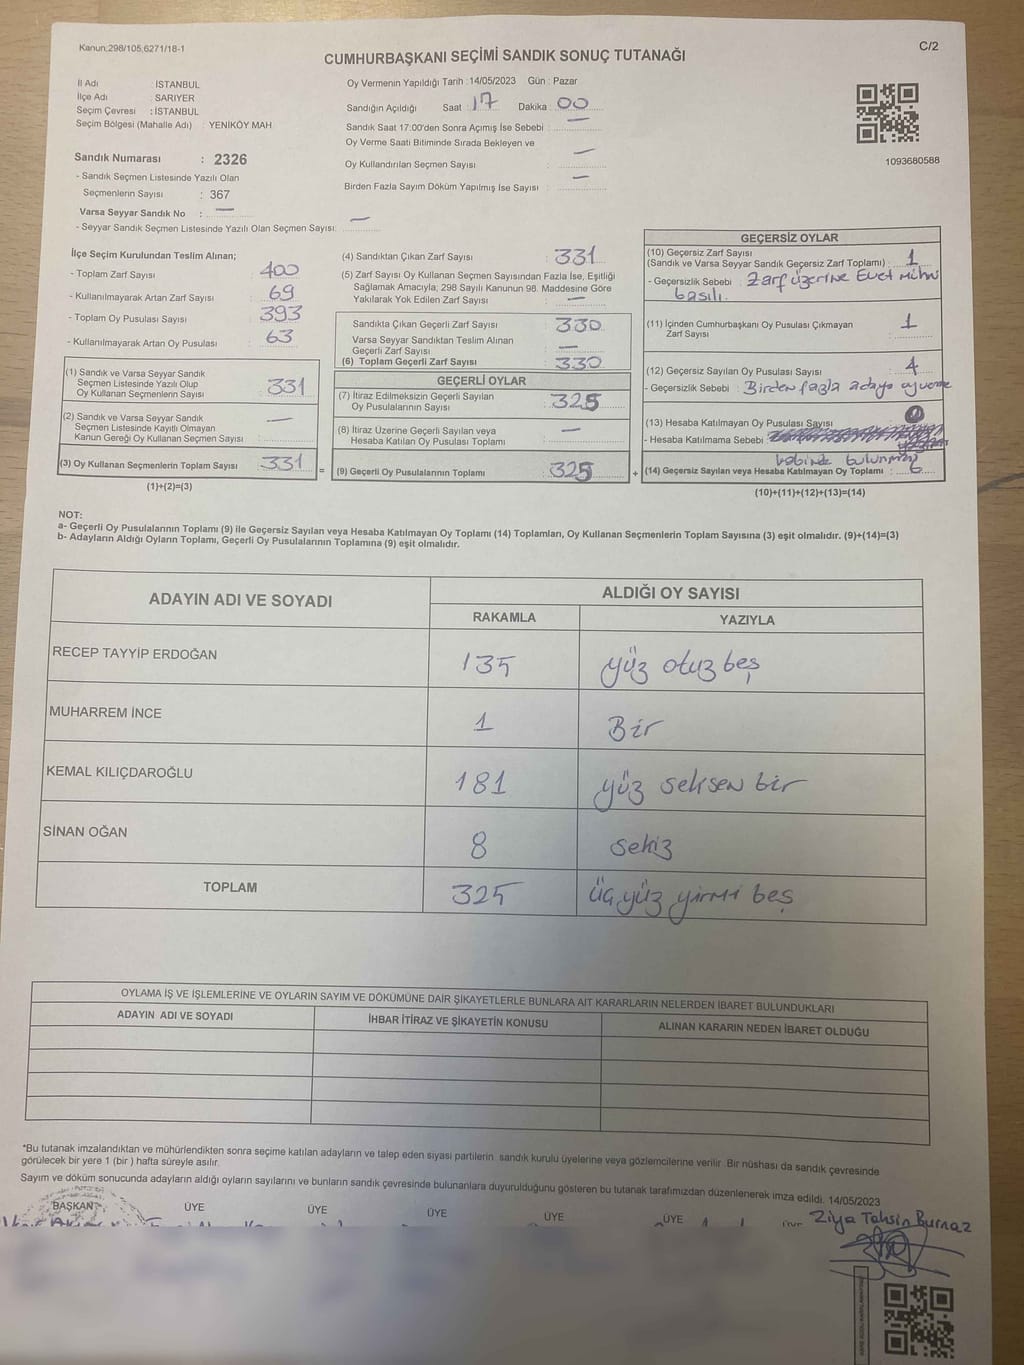 Kanun:298/105,6271/18-1
C/2
CUMHURBAŞKANI SEÇİMİ SANDIK SONUÇ TUTANAĞI
İl Adı : İSTANBUL
İlçe Adı : SARIYER
Seçim Çevresi : İSTANBUL
Seçim Bölgesi (Mahalle Adı) : YENİKÖY MAH
Oy Vermenin Yapıldığı Tarih :14/05/2023 Gün : Pazar
Sandığın Açıldığı Saat : 17 Dakika : 00
Sandık Saat 17:00'den Sonra Açımış İse Sebebi : —
Oy Verme Saati Bitiminde Sırada Bekleyen ve
Oy Kullandırılan Seçmen Sayısı : —
Birden Fazla Sayım Döküm Yapılmış İse Sayısı : —
1093680588
Sandık Numarası : 2326
- Sandık Seçmen Listesinde Yazılı Olan
Seçmenlerin Sayısı : 367
Varsa Seyyar Sandık No : —
- Seyyar Sandık Seçmen Listesinde Yazılı Olan Seçmen Sayısı: —
İlçe Seçim Kurulundan Teslim Alınan;
- Toplam Zarf Sayısı : 400
- Kullanılmayarak Artan Zarf Sayısı : 69
- Toplam Oy Pusulası Sayısı : 393
- Kullanılmayarak Artan Oy Pusulası : 63
(1) Sandık ve Varsa Seyyar Sandık
Seçmen Listesinde Yazılı Olup
Oy Kullanan Seçmenlerin Sayısı : 331
(2) Sandık ve Varsa Seyyar Sandık
Seçmen Listesinde Kayıtlı Olmayan
Kanun Gereği Oy Kullanan Seçmen Sayısı : —
(3) Oy Kullanan Seçmenlerin Toplam Sayısı : 331
(1)+(2)=(3)
=
(4) Sandıktan Çıkan Zarf Sayısı : 331
(5) Zarf Sayısı Oy Kullanan Seçmen Sayısından Fazla İse, Eşitliği
Sağlamak Amacıyla, 298 Sayılı Kanunun 98. Maddesine Göre
Yakılarak Yok Edilen Zarf Sayısı : —
Sandıkta Çıkan Geçerli Zarf Sayısı : 330
Varsa Seyyar Sandıktan Teslim Alınan
Geçerli Zarf Sayısı : —
(6) Toplam Geçerli Zarf Sayısı : 330
GEÇERLİ OYLAR
(7) İtiraz Edilmeksizin Geçerli Sayılan
Oy Pusulalarının Sayısı : 325
(8) İtiraz Üzerine Geçerli Sayılan veya
Hesaba Katılan Oy Pusulası Toplamı : —
(9) Geçerli Oy Pusulalarının Toplamı : 325
+
GEÇERSİZ OYLAR
(10) Geçersiz Zarf Sayısı
(Sandık ve Varsa Seyyar Sandık Geçersiz Zarf Toplamı) : 1
- Geçersizlik Sebebi : Zarf üzerine Evet mührü
basılı.
(11) İçinden Cumhurbaşkanı Oy Pusulası Çıkmayan
Zarf Sayısı : 1
(12) Geçersiz Sayılan Oy Pusulası Sayısı : 4
- Geçersizlik Sebebi : Birden fazla adaya oy verme
(13) Hesaba Katılmayan Oy Pusulası Sayısı : 0
- Hesaba Katılmama Sebebi :
(14) Geçersiz Sayılan veya Hesaba Katılmayan Oy Toplamı : 6
(10)+(11)+(12)+(13)=(14)
NOT:
a- Geçerli Oy Pusulalarının Toplamı (9) ile Geçersiz Sayılan veya Hesaba Katılmayan Oy Toplamı (14) Toplamları, Oy Kullanan Seçmenlerin Toplam Sayısına (3) eşit olmalıdır. (9)+(14)=(3)
b- Adayların Aldığı Oyların Toplamı, Geçerli Oy Pusulalarının Toplamına (9) eşit olmalıdır.
ADAYIN ADI VE SOYADI
ALDIĞI OY SAYISI
RAKAMLA
YAZIYLA
RECEP TAYYİP ERDOĞAN 135 yüz otuz beş
MUHARREM İNCE 1 Bir
KEMAL KILIÇDAROĞLU 181 yüz seksen bir
SİNAN OĞAN 8 sekiz
TOPLAM 325 üç yüz yirmi beş
OYLAMA İŞ VE İŞLEMLERİNE VE OYLARIN SAYIM VE DÖKÜMÜNE DAİR ŞİKAYETLERLE BUNLARA AİT KARARLARIN NELERDEN İBARET BULUNDUKLARI
ADAYIN ADI VE SOYADI
İHBAR İTİRAZ VE ŞİKAYETİN KONUSU
ALINAN KARARIN NEDEN İBARET OLDUĞU
*Bu tutanak imzalandıktan ve mühürlendikten sonra seçime katılan adayların ve talep eden siyasi partilerin sandık kurulu üyelerine veya gözlemcilerine verilir. Bir nüshası da sandık çevresinde
görülecek bir yere 1 (bir ) hafta süreyle asılır.
Sayım ve döküm sonucunda adayların aldığı oyların sayılarını ve bunların sandık çevresinde bulunanlara duyurulduğunu gösteren bu tutanak tarafımızdan düzenlenerek imza edildi. 14/05/2023
BAŞKAN ÜYE ÜYE ÜYE ÜYE ÜYE
Ziya Tahsin Burnaz